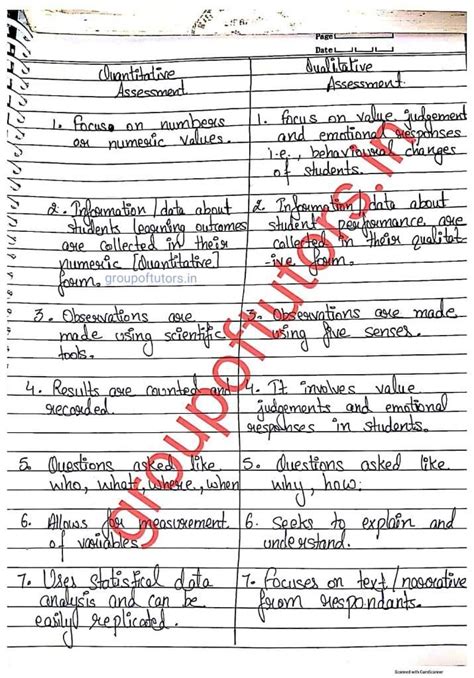 Page
Date
Quantitative Assessment.
1. Focus on numbers
or numeric values.
2. Information/data about
students learning outcomes
are collected in their
numeric [Quantitative]
form.
groupoftutors.in
3. Observations are
made using scientific
tools.
4. Results are counted and
recorded.
5. Questions asked like
who, what, where, when
6. Allows for measurement
of variables.
7. Uses statistical data
analysis and can be
easilyl replicated.
Qualitative
Assessment.
1. Focus on value judgement
and emotional responses
i.e., behavioural changes
of students.
2. Information/data about
student performance are
collected in their qualitat-
-ive form.
3. Observations are made
using five senses.
4. It involves value
judgements and emotional
responses in students.
5. Questions asked like
why, how.
6. Seeks to explain and
understand.
7. Focuses on text/narrative
from respondants.
groupoftutors.in
Scanned with CamScanner